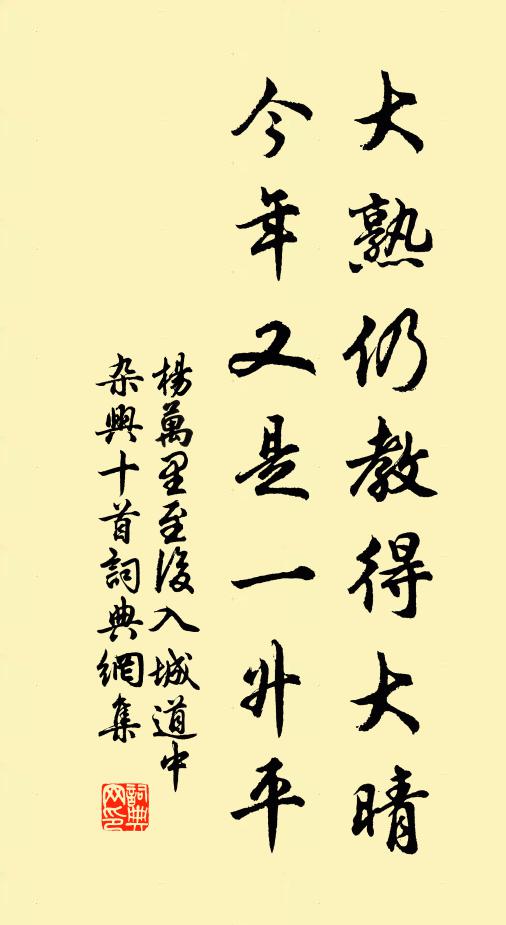 大熟仍教得大晴
今年又是一升平
楊萬里至後入城道中
杂興十首詞典網集
詞典
网印